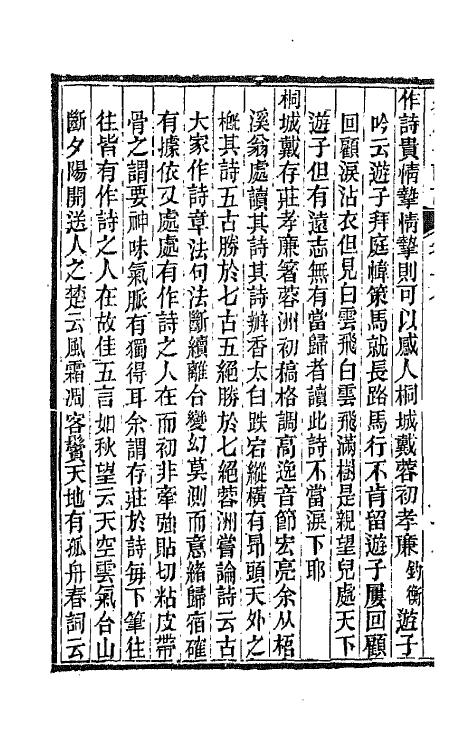 作詩貴情摯情摯則可以感人桐城戴蓉初孝廉鈞衡遊子
吟云遊子拜庭幃策馬就長路馬行不肯留遊子屢回顧
回顧淚沾衣但見白雲飛白雲飛滿樹是親望兒處天下
遊子但有遠志無有當歸者讀此詩不當淚下耶
桐城戴存莊孝廉箸蓉洲初稿格調高逸音節宏亮余从梧
溪翁處讀其詩其詩瓣香太白跌宕縱橫有昂頭天外之
槪其詩五古勝於七古五絕勝於七絕蓉洲嘗論詩云古
大家作詩章法句法斷續離合變幻莫測而意緒歸宿確
有據依又處處有作詩之人在而初非牽強貼切粘皮帶
骨之謂要神味氣脈有獨得耳余謂存莊於詩每下筆往
往皆有作詩之人在故佳五言如秋望云天空雲氣合山
斷夕陽開送人之楚云風霜凋客鬢天地有孤舟春詞云